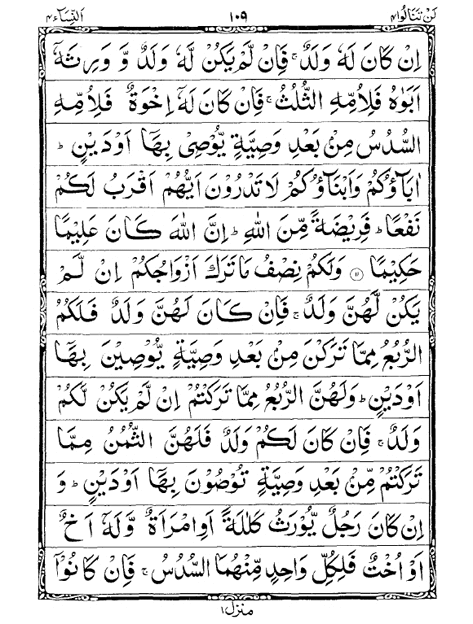 لن تنالوا ٤ ١٠٩ النساء ٤
اِنْ كَانَ لَهٗ وَلَدٌ ۚ فَاِنْ لَّمْ يَكُنْ لَّهٗ وَلَدٌ وَّ وَرِثَهٗۤ
اَبَوٰهُ فَلِاُمِّهِ الثُّلُثُ ۚ فَاِنْ كَانَ لَهٗۤ اِخْوَةٌ فَلِاُمِّهِ
السُّدُسُ مِنْۢ بَعْدِ وَصِيَّةٍ يُّوْصِيْ بِهَاۤ اَوْ دَيْنٍ ؕ
اٰبَآؤُكُمْ وَاَبْنَآؤُكُمْ لَا تَدْرُوْنَ اَيُّهُمْ اَقْرَبُ لَكُمْ
نَفْعًا ؕ فَرِيْضَةً مِّنَ اللّٰهِ ؕ اِنَّ اللّٰهَ كَانَ عَلِيْمًا
حَكِيْمًا ۝۱۱ وَلَكُمْ نِصْفُ مَا تَرَكَ اَزْوَاجُكُمْ اِنْ لَّمْ
يَكُنْ لَّهُنَّ وَلَدٌ ۚ فَاِنْ كَانَ لَهُنَّ وَلَدٌ فَلَكُمُ
الرُّبُعُ مِمَّا تَرَكْنَ مِنْۢ بَعْدِ وَصِيَّةٍ يُّوْصِيْنَ بِهَاۤ
اَوْ دَيْنٍ ؕ وَلَهُنَّ الرُّبُعُ مِمَّا تَرَكْتُمْ اِنْ لَّمْ يَكُنْ لَّكُمْ
وَلَدٌ ۚ فَاِنْ كَانَ لَكُمْ وَلَدٌ فَلَهُنَّ الثُّمُنُ مِمَّا
تَرَكْتُمْ مِّنْۢ بَعْدِ وَصِيَّةٍ تُوْصُوْنَ بِهَاۤ اَوْ دَيْنٍ ؕ وَ
اِنْ كَانَ رَجُلٌ يُّوْرَثُ كَلٰلَةً اَوِ امْرَاَةٌ وَّلَهٗۤ اَخٌ
اَوْ اُخْتٌ فَلِكُلِّ وَاحِدٍ مِّنْهُمَا السُّدُسُ ۚ فَاِنْ كَانُوْۤا
منزل ١